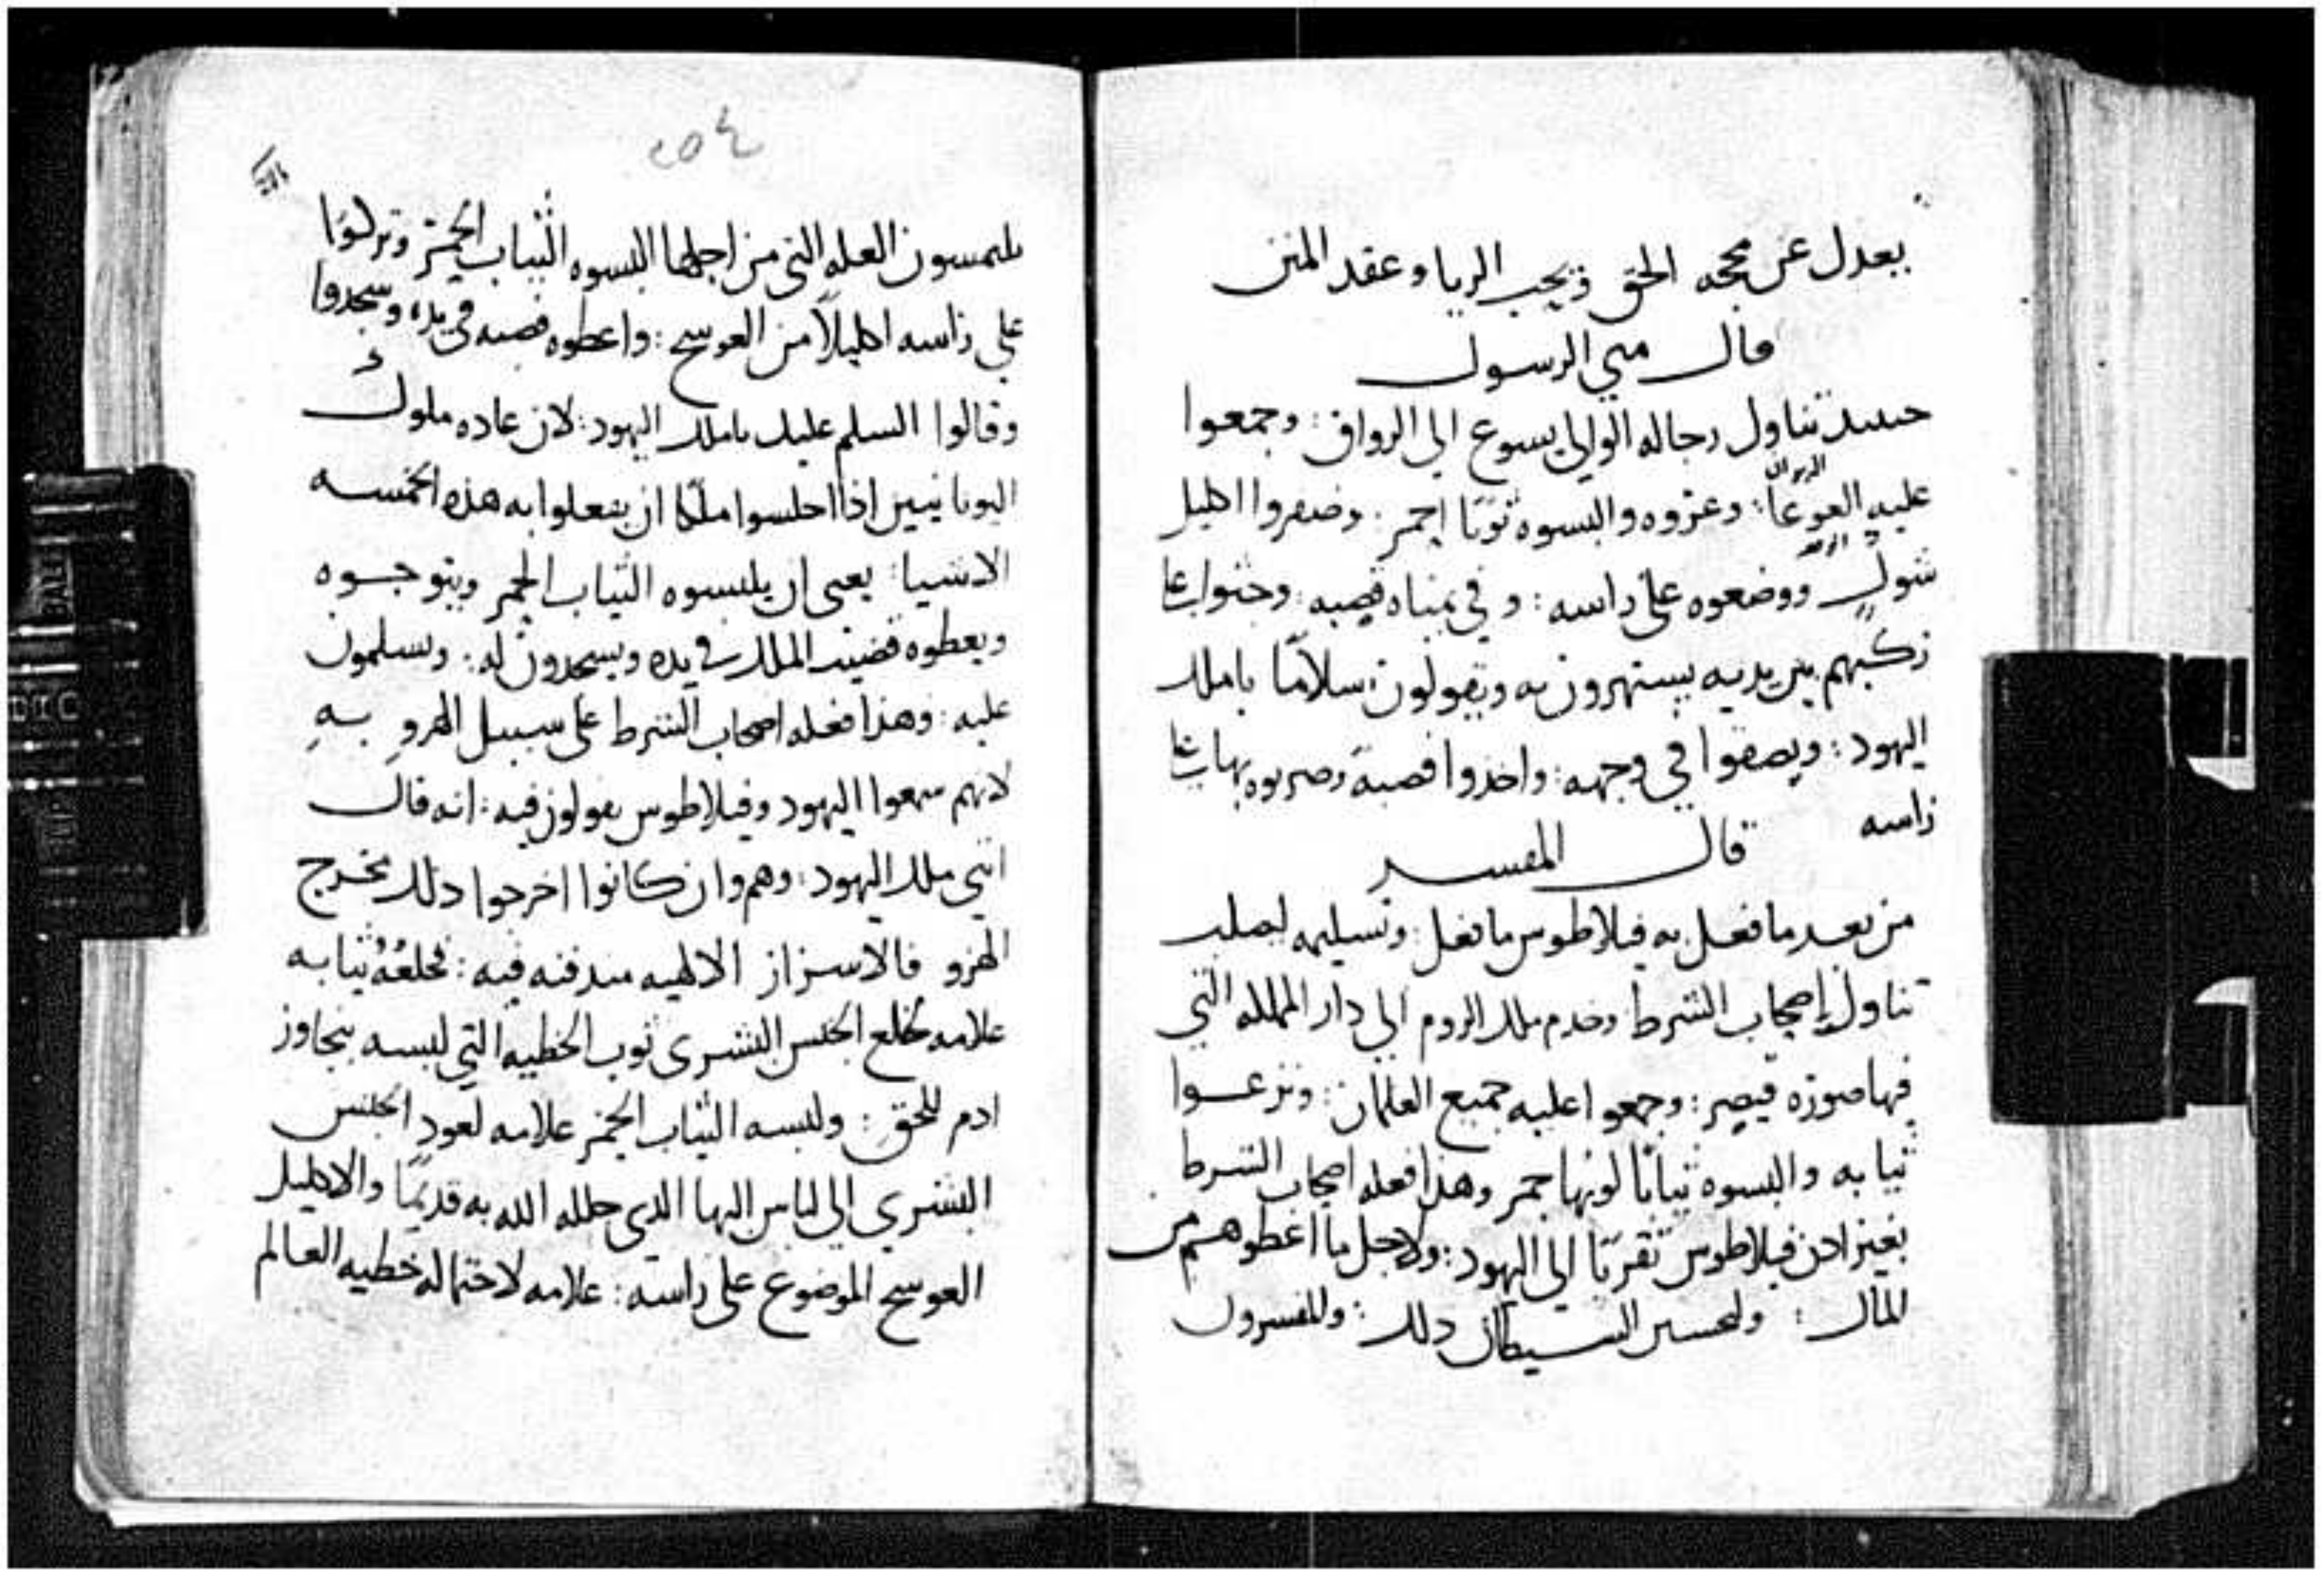 يعدل عن محجه الحق ويحب الريا وعقد المنن
قال متي الرسول
حينيد تناول رجاله الوالي يسوع الي الرواق : وجمعوا
الديوان
عليه الغوغا : وعزوه والبسوه ثوبا احمر . وضفروا اكليل
شوك ووضعوه على راسه : وفي يمناه قصبه : وجثوا على
ركبهم بين يديه يستهزون به ويقولون : سلاما ياملك
اليهود : وبصقوا في وجهه : واخذوا قصبة وضربوه بها على
راسه
قال المفسر
من بعد ما فعل به فيلاطوس ما فعل : وتسليمه ليصلب
تناول اصحاب الشرط وخدم ملك الروم الي دار المملكه التي
فيها صوره قيصر : وجمعوا عليه جميع الغلمان : ونزعوا
ثيابه والبسوه ثيابا لونها احمر وهذا فعله اصحاب الشرط
بغير اذن فيلاطوس تقربا الي اليهود : ولاجل ما اعطوهم من
المال : ولتحسين الشيطان ذلك : والمفسرون
٢٥٤
يلتمسون العله التي من اجلها البسوه الثياب الحمر وتركوا
علي راسه اكليلا من العوسج : واعطوه قصبه في يده وسجدوا
وقالوا السلم عليك ياملك اليهود : لان عاده ملوك
اليونانيين اذا اجلسوا ملكا ان يفعلوا به هذه الخمسه
الاشيا : يعنى ان يلبسوه الثياب الحمر ويتوجوه
ويعطوه قضيب الملك في يده ويسجدون له : ويسلمون
عليه : وهذا فعله اصحاب الشرط على سبيل الهزو به
لانهم سمعوا اليهود وفيلاطوس يقولون فيه : انه قال
انني ملك اليهود : وهم وان كانوا اخرجوا ذلك مخرج
الهزو فالاسرار الالهيه مندفنه فيه : فخلعه ثيابه
علامه لخلع الجنس البشرى ثوب الخطيه التي لبسه بتجاوز
ادم للحق : ولبسه الثياب الحمر علامه لعود الجنس
البشري الي لباس البها الذي جلله الله به قديما والاكليل
العوسج الموضوع على راسه : علامه لاحتماله خطيه العالم